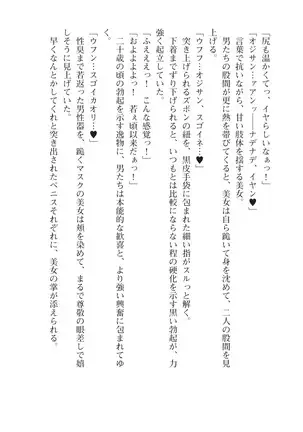 「尻も温かくてっ、イヤらしいなぁっ！」
「オジサン……ァアンッ――ナデナデ、イヤン♥」
言葉で抗いながら、甘い肢体を揺する美女。
男たちの股間が更に熱を帯びてくると、美女は自ら跪いて身を沈めて、二人の股間を見
上げる。
「ウフフ…オジサン、スゴイネ…♥」
突き上げられるズボンの紐を、黒皮手袋に包まれた細い指がスルっと解く。
下着までずり下げられると、いつもとは比較にならない程の硬化を示す黒い勃起が、力
強く起立していた。
「ふえええっ！　こんな感覚っ！」
「およよよよっ！　若ぇ頃以来だぁっ！」
二十歳の頃の勃起を示す逸物に、男たちは本能的な歓喜と、より強い興奮に包まれてゆ
く。
「ウフン…スゴイカオリ…♥」
性臭まで若返った男性器を、跪くマスクの美女は頬を染めて、まるで尊敬の眼差しで嬉
しそうに見上げていた。
早くなんとかしてくれと突き出されたペニスそれぞれに、美女の掌が添えられる。